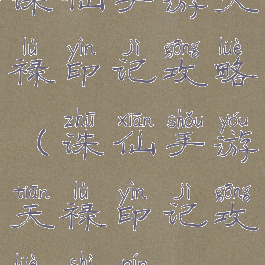 诛仙手游天
lù yìn jì gōng lüè
禄印记攻略
zhū xiān shǒu yóu
(诛仙手游
tiān lù yìn jì gōng
天禄印记攻
lüè shì pín